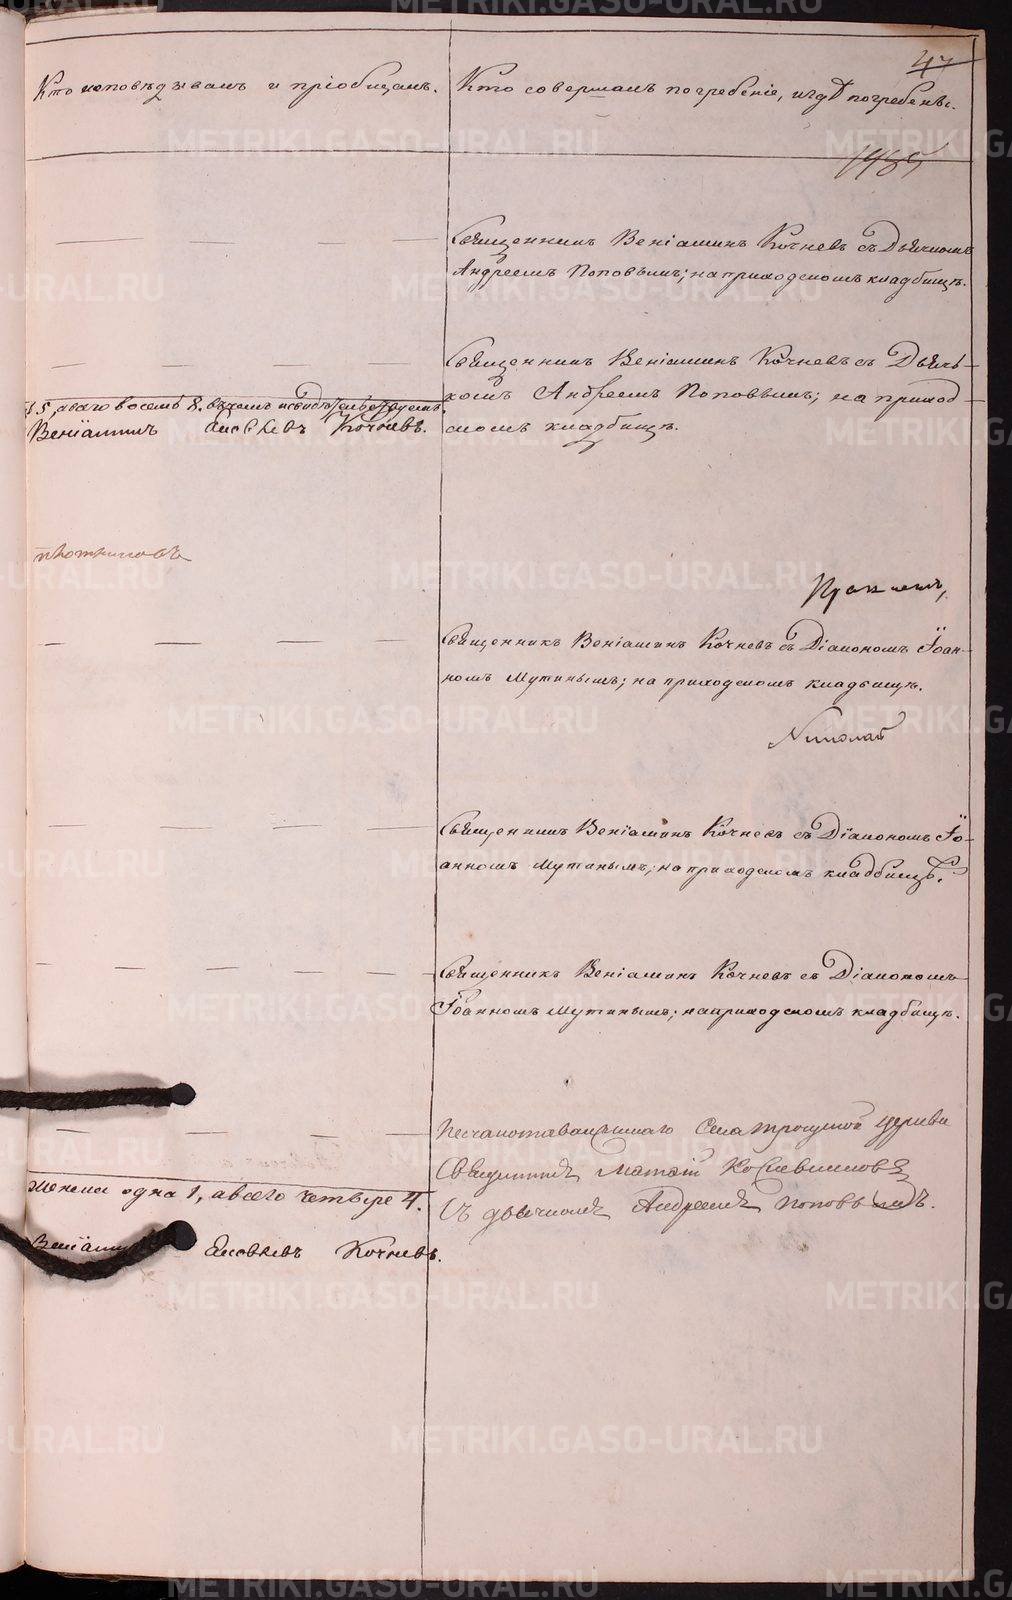 47
Кто исповѣдывалъ и пріобщалъ.
Кто совершалъ погребеніе, и гдѣ погребенъ.
1485
Священникъ Веніаминъ Кочневъ съ Дьячкомъ
Андреемъ Поповымъ; на приходскомъ кладбищѣ.
Священникъ Веніаминъ Кочневъ съ Дьяч-
комъ Андреемъ Поповымъ; на приход-
скомъ кладбищѣ.
5, а всего восемь 8, въ чемъ и свидѣтельствуемъ,
Веніаминъ Яковлевъ Кочневъ.
Священникъ Веніаминъ Кочневъ съ Діакономъ Іоан-
номъ Мутинымъ; на приходскомъ кладбищѣ.
Николай
Священникъ Веніаминъ Кочневъ съ Діакономъ Іо-
анномъ Мутинымъ; на приходскомъ кладбищѣ.
Священникъ Веніаминъ Кочневъ съ Діакономъ
Іоанномъ Мутинымъ; на приходскомъ кладбищѣ.
села Троицкой церкви
Священникъ Матѳій
Съ дьячкомъ Андреемъ Поповымъ.
женска одна 1, а всего четыре 4.
Веніаминъ Яковлевъ Кочневъ.
METRIKI.GASO-URAL.RU